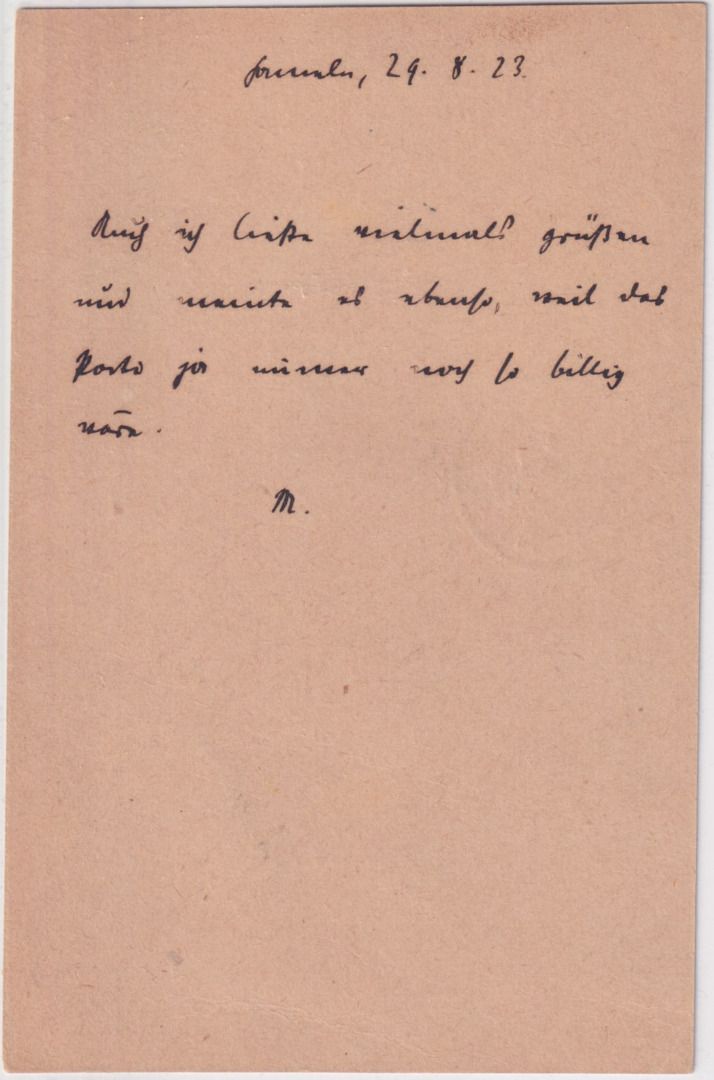 29. 8. 23.
Auch ich ließe vielmals grüßen
und meinte es ebenso, weil das
Porto ja immer noch so billig
wäre.
M.